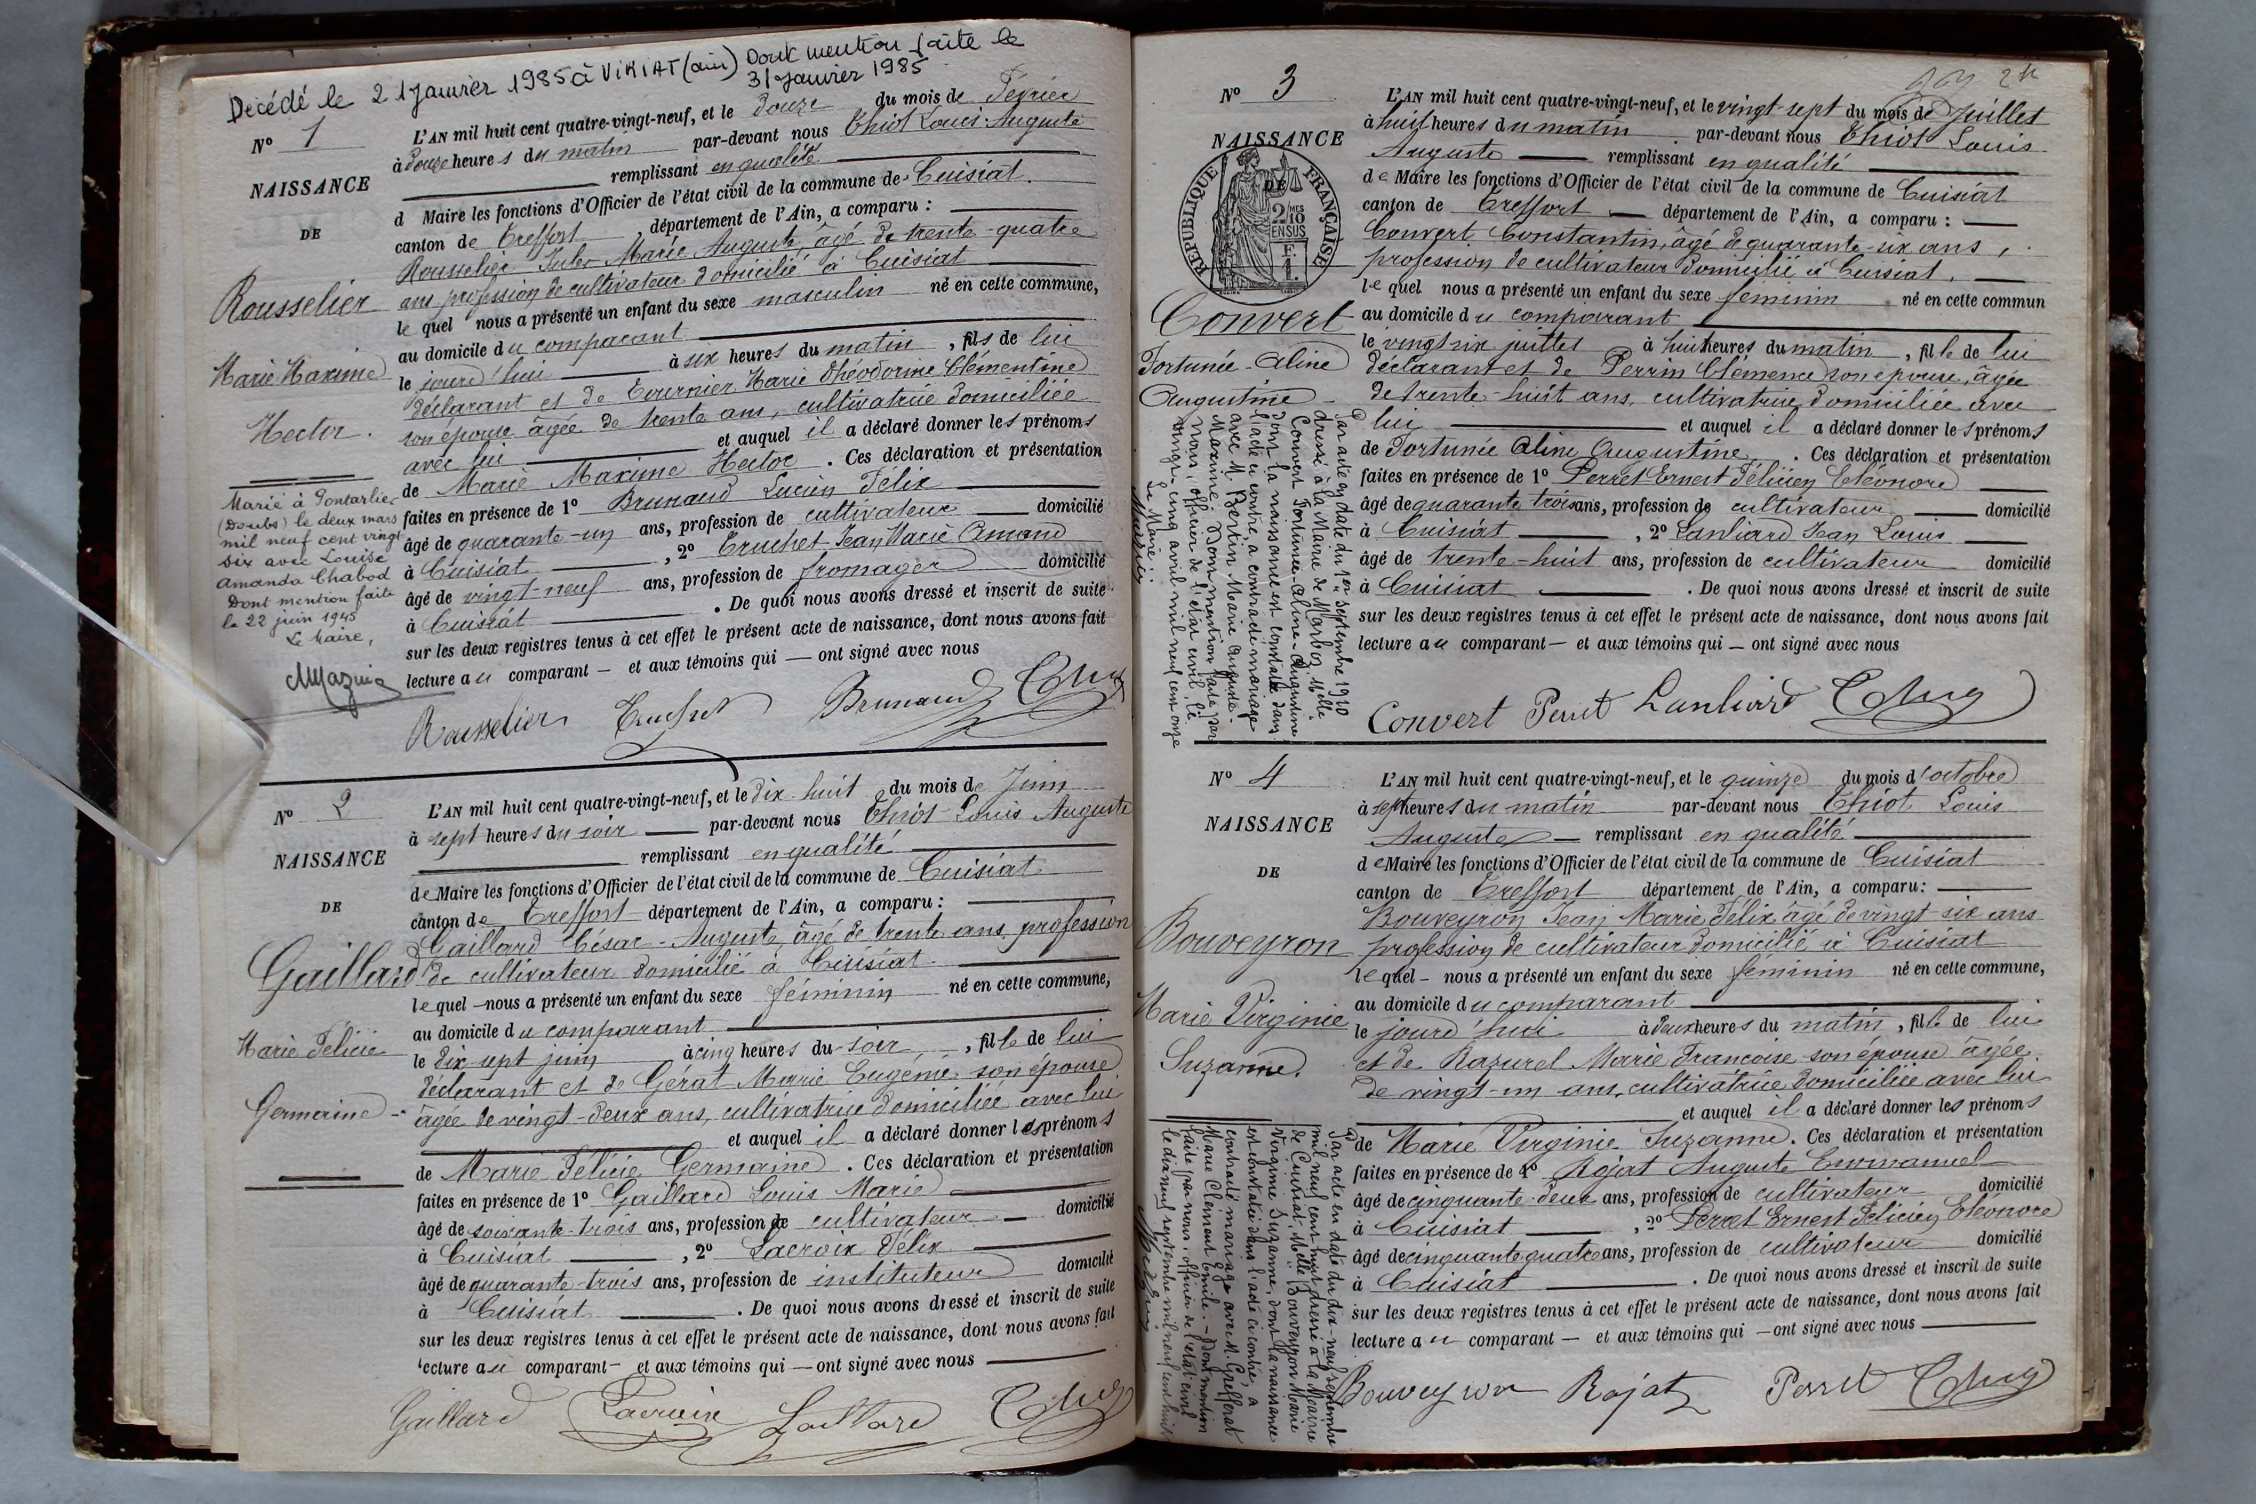 Décédé le 21 janvier 1985 à VIRIAT (ain) Dont mention faite le
31 janvier 1985
N° 1
NAISSANCE
DE
Rousselier
Marie Maxime
Hector.
Marié à Pontarlier
(Doubs) le deux mars
mil neuf cent vingt
six avec Louise
Amanda Chabod
Dont mention faite
le 22 juin 1945
Le Maire,
L'AN mil huit cent quatre-vingt-neuf, et le douze du mois de Février
à douze heures du matin par-devant nous Thiot Louis Auguste
remplissant en qualité
d Maire les fonctions d'Officier de l'état civil de la commune de Cuisiat.
canton de Treffort, département de l'Ain, a comparu :
Rousselier Jules Marie Auguste, âgé de trente-quatre
ans profession de cultivateur domicilié à Cuisiat
lequel nous a présenté un enfant du sexe masculin né en cette commune,
au domicile du comparant
le jourd'hui à six heures du matin, fils de lui
déclarant et de Tournier Marie Théodorine Clémentine
son épouse âgée de trente ans, cultivatrice domiciliée
avec lui et auquel il a déclaré donner les prénoms
de Marie Maxime Hector. Ces déclaration et présentation
faites en présence de 1° Brunaud Lucien Félix
âgé de quarante-un ans, profession de cultivateur domicilié
à Cuisiat, 2° Truchet Jean Marie Amand
âgé de vingt-neuf ans, profession de fromager domicilié
à Cuisiat. De quoi nous avons dressé et inscrit de suite
sur les deux registres tenus à cet effet le présent acte de naissance, dont nous avons fait
lecture au comparant — et aux témoins qui — ont signé avec nous
Rousselier Truchet Brunaud
N° 2
NAISSANCE
DE
Gaillard
Marie Félicie
Germaine
L'AN mil huit cent quatre-vingt-neuf, et le dix-huit du mois de Juin
à sept heures du soir par-devant nous Thiot Louis Auguste
remplissant en qualité
de Maire les fonctions d'Officier de l'état civil de la commune de Cuisiat
canton de Treffort département de l'Ain, a comparu :
Gaillard César-Auguste, âgé de trente ans, profession
de cultivateur domicilié à Cuisiat
lequel nous a présenté un enfant du sexe féminin né en cette commune,
au domicile du comparant
le dix sept juin à cinq heures du soir, fille de lui
déclarant et de Gérat Marie Eugénie son épouse
âgée de vingt-deux ans, cultivatrice domiciliée avec lui
et auquel il a déclaré donner les prénoms
de Marie Félicie Germaine. Ces déclaration et présentation
faites en présence de 1° Gaillard Louis Marie
âgé de soixante-trois ans, profession de cultivateur domicilié
à Cuisiat, 2° Lacroix Félix
âgé de quarante-trois ans, profession de instituteur domicilié
à Cuisiat. De quoi nous avons dressé et inscrit de suite
sur les deux registres tenus à cet effet le présent acte de naissance, dont nous avons fait
lecture au comparant — et aux témoins qui — ont signé avec nous
Gaillard Lacroix Gaillard
N° 3
NAISSANCE
DE
RÉPUBLIQUE FRANÇAISE
2 MES
10
EN SUS
Convert
Fortunée-Aline
Augustine
Par acte en date du 1er septembre 1910
dressé à la Mairie de Marboz, Melle
Convert Fortunée-Aline-Augustine
dont la naissance est constatée dans
l'acte ci contre, a contracté mariage
avec M. Bertin Marie Auguste-
Maxime. Dont mention faite par
nous, officier de l'état civil, le
vingt cinq avril mil neuf cent onze
Le Maire :
L'AN mil huit cent quatre-vingt-neuf, et le vingt-sept du mois de Juillet
à huit heures du matin par-devant nous Thiot Louis
Auguste remplissant en qualité
de Maire les fonctions d'Officier de l'état civil de la commune de Cuisiat
canton de Treffort département de l'Ain, a comparu :
Convert Constantin, âgé de quarante-six ans,
profession de cultivateur domicilié à Cuisiat.
lequel nous a présenté un enfant du sexe féminin né en cette commun
au domicile du comparant
le vingt six juillet à huit heures du matin, fille de lui
déclarant et de Perrin Clémence son épouse, âgée
de trente-huit ans, cultivatrice domiciliée avec
lui et auquel il a déclaré donner les prénoms
de Fortunée Aline Augustine. Ces déclaration et présentation
faites en présence de 1° Perret Ernest Félicien Eléonore
âgé de quarante trois ans, profession de cultivateur domicilié
à Cuisiat, 2° Lanliard Jean Louis
âgé de trente-huit ans, profession de cultivateur domicilié
à Cuisiat. De quoi nous avons dressé et inscrit de suite
sur les deux registres tenus à cet effet le présent acte de naissance, dont nous avons fait
lecture au comparant — et aux témoins qui — ont signé avec nous
Convert Perret Lanliard
N° 4
NAISSANCE
DE
Bouveyron
Marie Virginie
Suzanne.
Par acte en date du dix-neuf septembre
mil neuf cent huit dressé à la Mairie
de Cuisiat Melle Bouveyron Marie
Virginie Suzanne, dont la naissance
est constatée dans l'acte ci contre, a
contracté mariage avec M. Grefferat
Marie Clément Emile. Dont mention
faite par nous, officier de l'état civil
le dix neuf septembre mil neuf cent huit
L'AN mil huit cent quatre-vingt-neuf, et le quinze du mois d'octobre
à sept heures du matin par-devant nous Thiot Louis
Auguste remplissant en qualité
de Maire les fonctions d'Officier de l'état civil de la commune de Cuisiat
canton de Treffort département de l'Ain, a comparu :
Bouveyron Jean Marie Félix âgé de vingt-six ans
profession de cultivateur domicilié à Cuisiat
lequel nous a présenté un enfant du sexe féminin né en cette commune,
au domicile du comparant
le jourd'hui à deux heures du matin, fille de lui
et de Razurel Marie Françoise son épouse âgée
de vingt-un ans, cultivatrice domiciliée avec lui
et auquel il a déclaré donner les prénoms
de Marie Virginie Suzanne. Ces déclaration et présentation
faites en présence de 1° Rojat Auguste Emmanuel
âgé de cinquante-deux ans, profession de cultivateur domicilié
à Cuisiat, 2° Perret Ernest Félicien Eléonore
âgé de cinquante quatre ans, profession de cultivateur domicilié
à Cuisiat. De quoi nous avons dressé et inscrit de suite
sur les deux registres tenus à cet effet le présent acte de naissance, dont nous avons fait
lecture au comparant — et aux témoins qui — ont signé avec nous
Bouveyron Rojat Perret